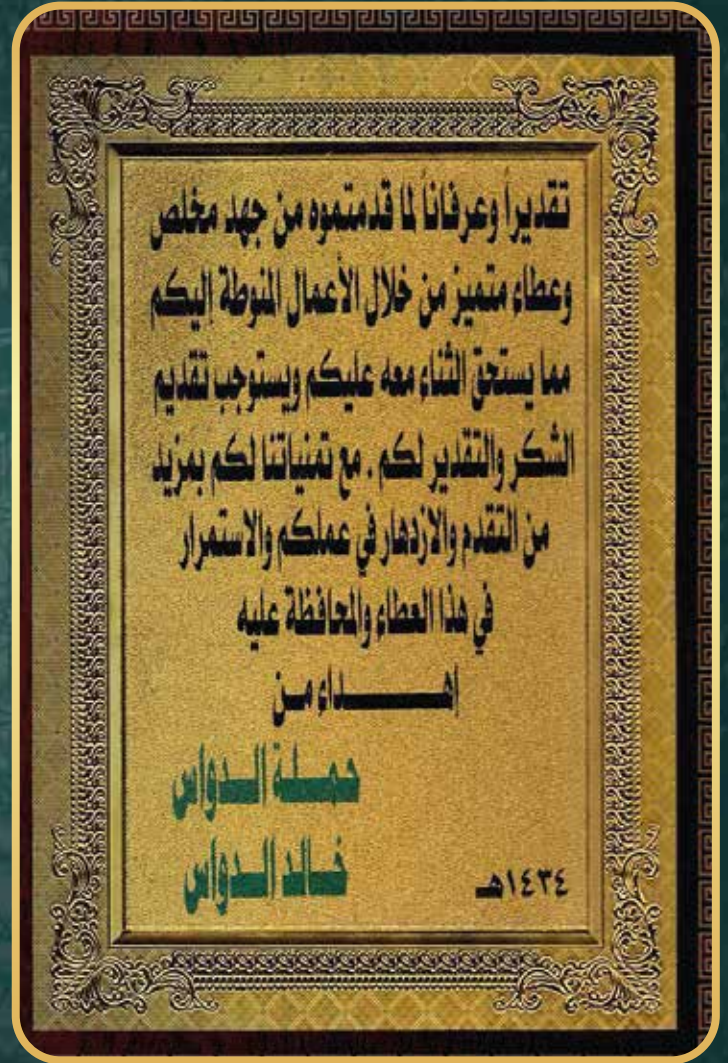 تقديراً وعرفاناً لما قدمتموه من جهد مخلص
وعطاء متميز من خلال الأعمال المنوطة إليكم
مما يستحق الثناء معه عليكم ويستوجب تقديم
الشكر والتقدير لكم . مع تمنياتنا لكم بمزيد
من التقدم والازدهار في عملكم والاستمرار
في هذا العطاء والمحافظة عليه
إهـــــــداء مـن
حمـلـة الـدواس
خـالـد الـدواس
١٤٣٤هـ